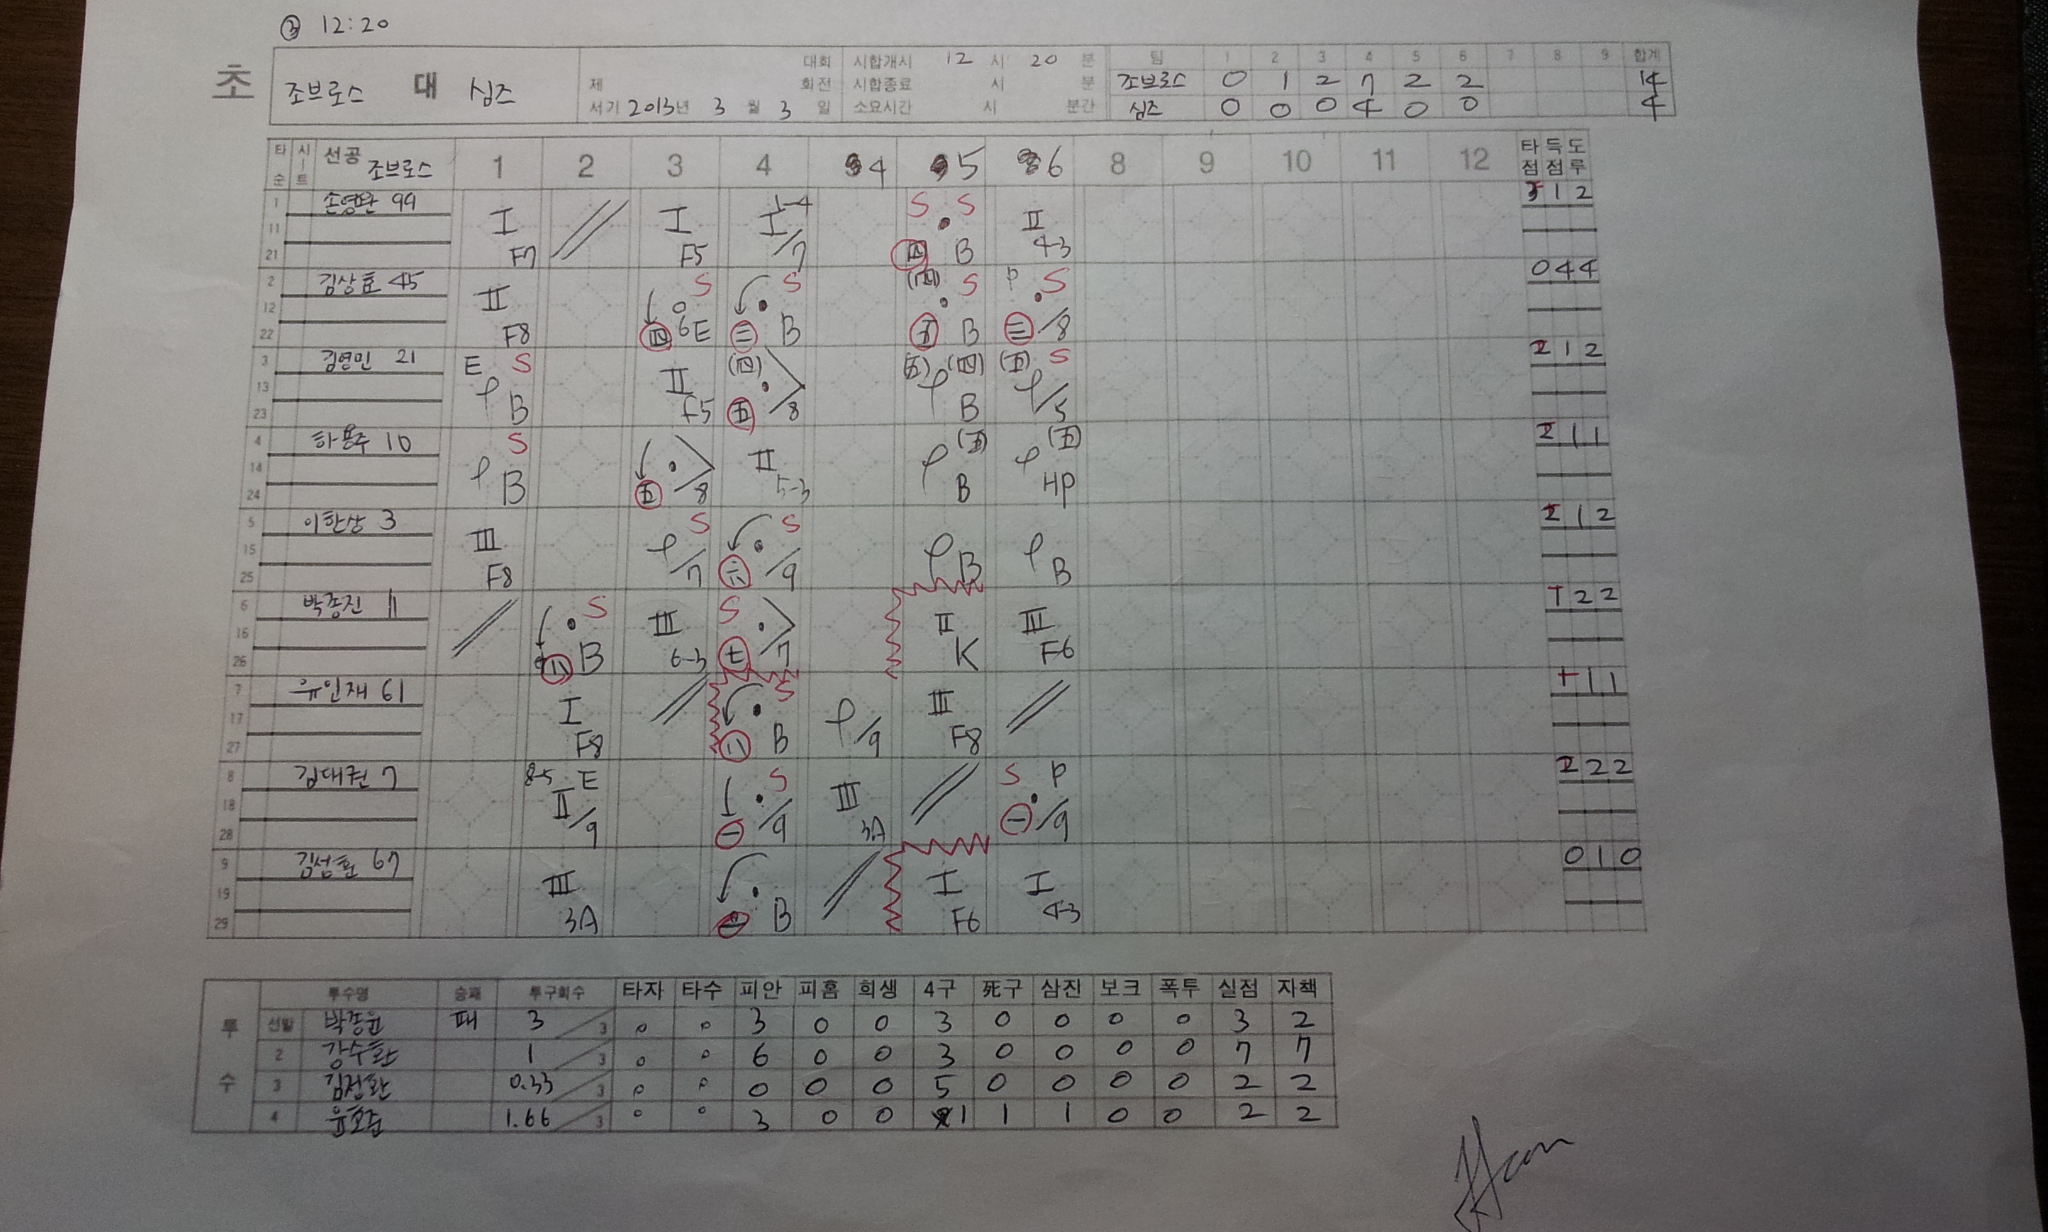 ③ 12:20
초 조브로스 대 심즈
제 대회 회전
서기 2013년 3월 3일
시합개시 12시 20분
시합종료 시 분
소요시간 시 분간
팀 1 2 3 4 5 6 7 8 9 합계
조브로스 0 1 2 7 2 2 14
심즈 0 0 0 4 0 0 4
타순 시트 선공 조브로스 1 2 3 4 4 5 6 8 9 10 11 12 타점 득점 도루
1 11 21 99 I F7 I F5 I /7 S S B II 4-3 1 2
2 12 22 김상효 45 II F8 S 6E S B S B P S /8 0 4 4
3 13 23 김영민 21 E S B II F5 /8 B S /5 2 1 2
4 14 24 하용주 10 S B /8 II 5-3 B HP 2 1 1
5 15 25 이한상 3 III F8 S /7 S /9 B B 2 1 2
6 16 26 박종진 11 S B III 6-3 S /7 II K III F6 1 2 2
7 17 27 유인재 61 I F8 S B /9 III F8 1 1 1
8 18 28 김대권 7 8-5 E II /9 S /9 III 3A S P /9 2 2 2
9 19 29 67 III 3A B I F6 I 4-3 0 1 0
투수 투수명 승패 투구회수 타자 타수 피안 피홈 희생 4구 死구 삼진 보크 폭투 실점 자책
선발 박종윤 패 3 /3 0 0 3 0 0 3 0 0 0 0 3 2
2 강수환 1 /3 0 0 6 0 0 3 0 0 0 0 7 7
3 0.33 /3 0 0 0 0 0 5 0 0 0 0 2 2
4 1.66 /3 0 0 3 0 0 1 1 1 0 0 2 2